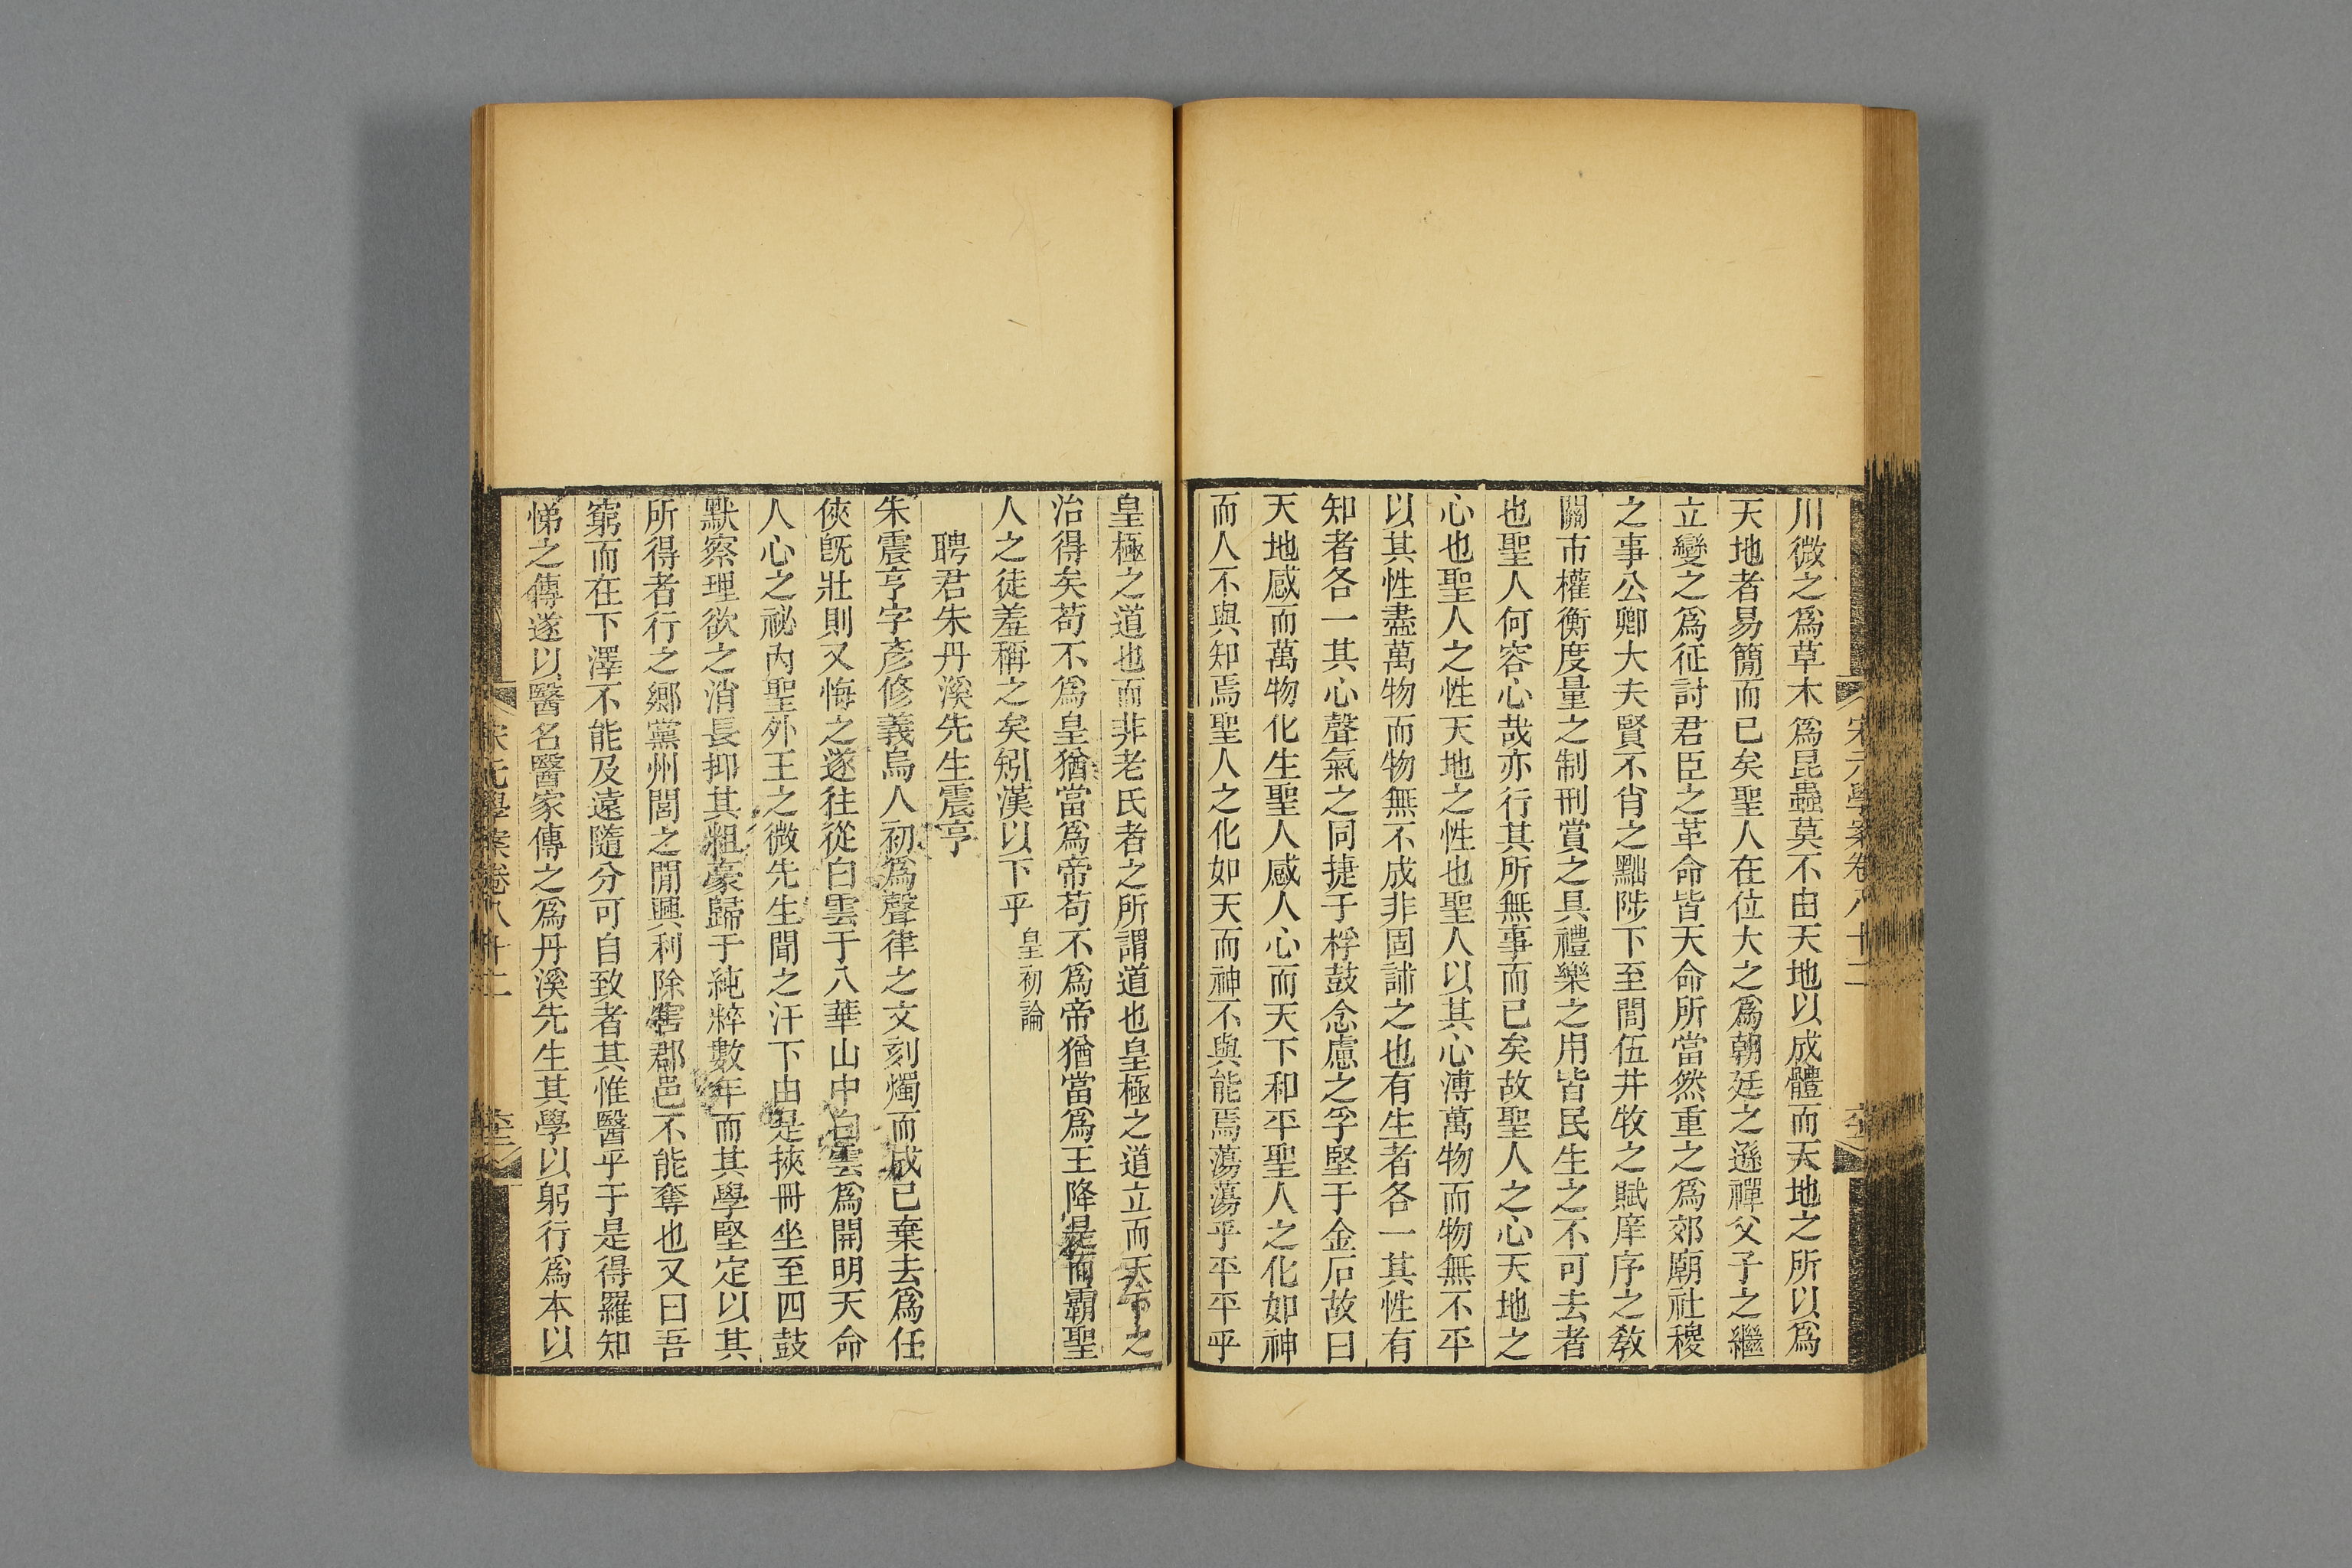 川微之爲草木爲昆蟲莫不由天地以成體而天地之所以爲
天地者易簡而已矣聖人在位大之爲朝廷之遜禪父子之繼
立變之爲征討君臣之革命皆天命所當然重之爲郊廟社稷
之事公卿大夫賢不肖之黜陟下至閭伍井牧之賦庠序之敎
關市權衡度量之制刑賞之具禮樂之用皆民生之不可去者
也聖人何容心哉亦行其所無事而已矣故聖人之心天地之
心也聖人之性天地之性也聖人以其心溥萬物而物無不平
以其性盡萬物而物無不成非固誧之也有生者各一其性有
知者各一其心聲氣之同捷于桴鼓念慮之孚堅于金石故曰
天地感而萬物化生聖人感人心而天下和平聖人之化如神
而人不與知焉聖人之化如天而神不與能焉蕩蕩乎平平乎
宋元學案卷八十二
皇極之道也而非老氏者之所謂道也皇極之道立而天下之
治得矣苟不爲皇猶當爲帝苟不爲帝猶當爲王降是而霸聖
人之徒羞稱之矣矧漢以下乎皇初論
聘君朱丹溪先生震亨
朱震亨字彥修義烏人初爲聲律之文刻燭而成已棄去爲任
俠旣壯則又悔之遂往從白雲于八華山中白雲爲開明天命
人心之祕內聖外王之微先生聞之汗下由是挾冊坐至四鼓
默察理欲之消長抑其粗豪歸于純粹數年而其學堅定以其
所得者行之鄉黨州閭之閒興利除害郡邑不能奪也又曰吾
窮而在下澤不能及遠隨分可自致者其惟醫乎于是得羅知
悌之傳遂以醫名醫家傳之爲丹溪先生其學以躬行爲本以
宋元學案卷八十二